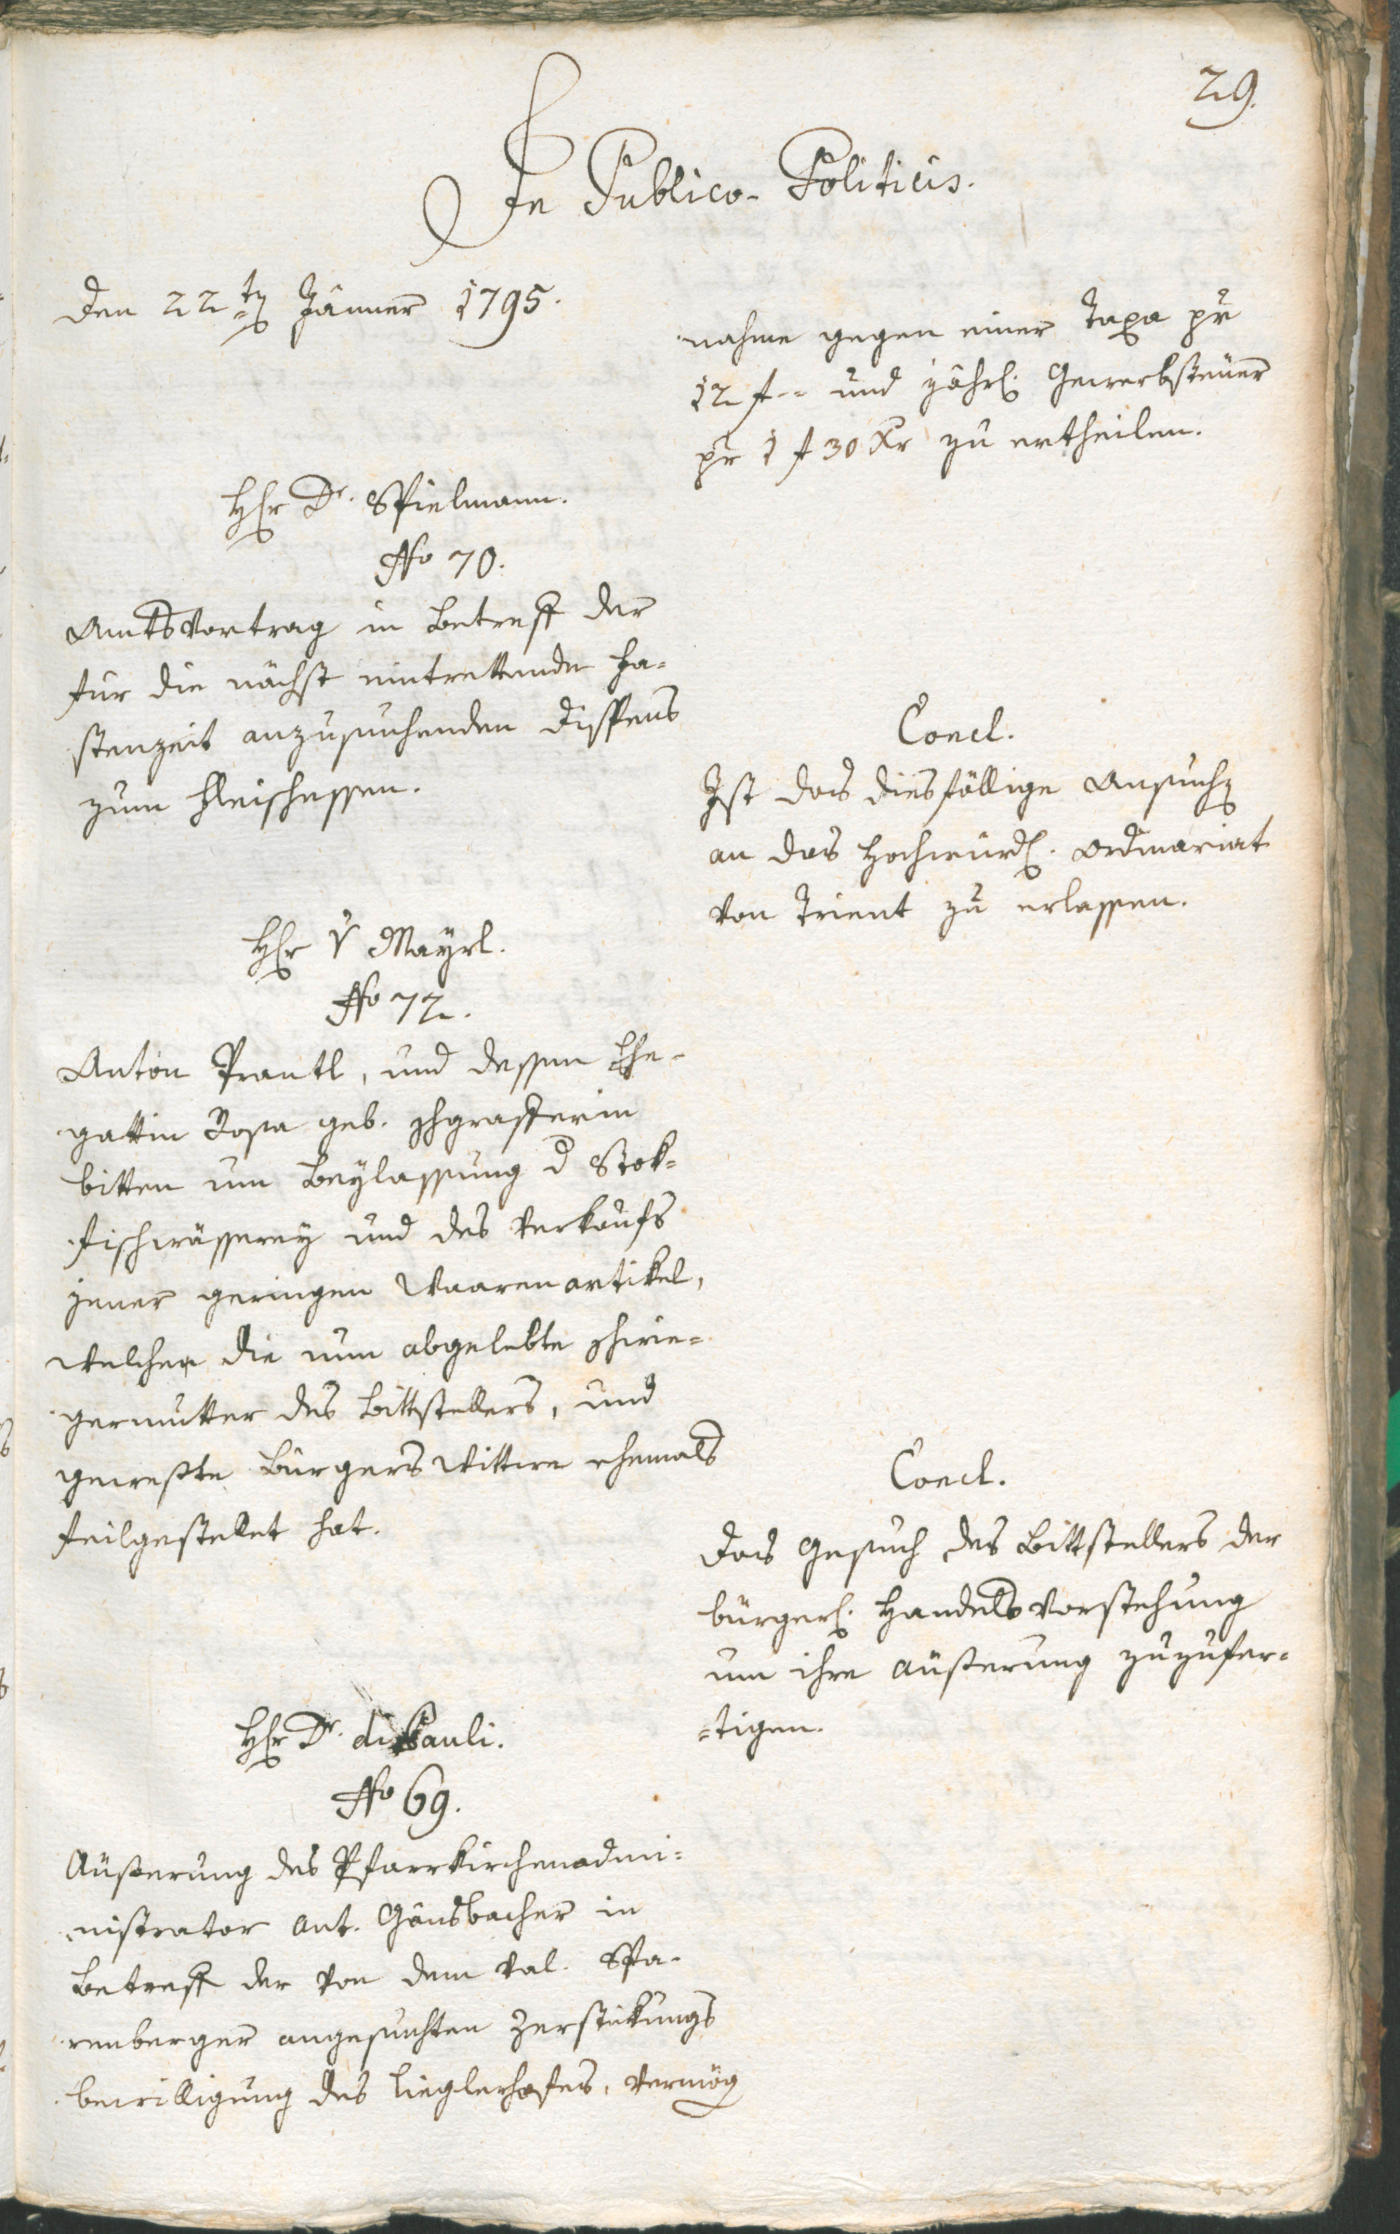 29.
In Publico-Politicis.
Den 22ten Jänner 1795.
Hr Dr. Spielmann.
No 70.
Amtsvortrag in Betreff der
für die nächst eintrettende Fa-
stenzeit anzusuchenden Dispens
zum Fleischessen.
Hr v Mayrl.
No 72.
Anton Prantl, und dessen Ehe-
gattin Rosa geb. Schgrafferin
bitten um Beylassung d Stok-
fischwässerey und des Verkaufs
jener geringen Waarenartikel,
welche die nun abgelebte Schwie-
germutter des Bittstellers, und
geweßte Bürgerswittwe ehemals
feilgestellet hat.
Hr Dr. di Pauli.
No 69.
Äußerung des Pfarrkirchenadmi-
nistrator Ant. Gänsbacher in
Betreff der von dem Val. Spa-
renberger angesuchten Zerstükungs
bewilligung des Zieglerhofes, vermög
nahme gegen einer Taxa pr
12 f -- und jährl. Gewerbsteuer
pr 1 f 30 Xr zu ertheilen.
Concl.
Ist das diesfällige Ansuchen
an das Hochwürdl. Ordinariat
von Trient zu erlassen.
Concl.
Das Gesuch des Bittstellers der
bürgerl. Handelsvorstehung
um ihre Äußerung zuzufer-
-tigen.